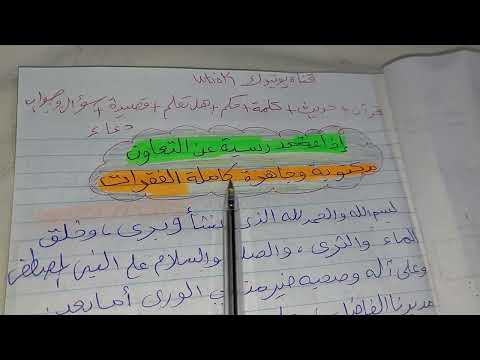 قناة يوتيوك
قرآن + حديث + كلمة + حكم + هل تعلم + قصيدة + سؤال وجواب
دعاء
إذاعة مدرسية عن التعاون
مكتوبة وجاهزة كاملة الفقرات
بسم الله والحمد لله الذي أنشأ وبرى، وخلق
الماء والثرى، والصلا والسلام على النبي المصطفى
وعلى آله وصحبه خير من في الورى أما بعد:
مديرنا الفاضل